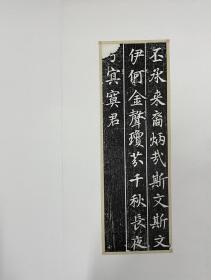 丕承來裔炳哉斯文斯文
伊何金聲瓊芬千秋長夜
寘寞君